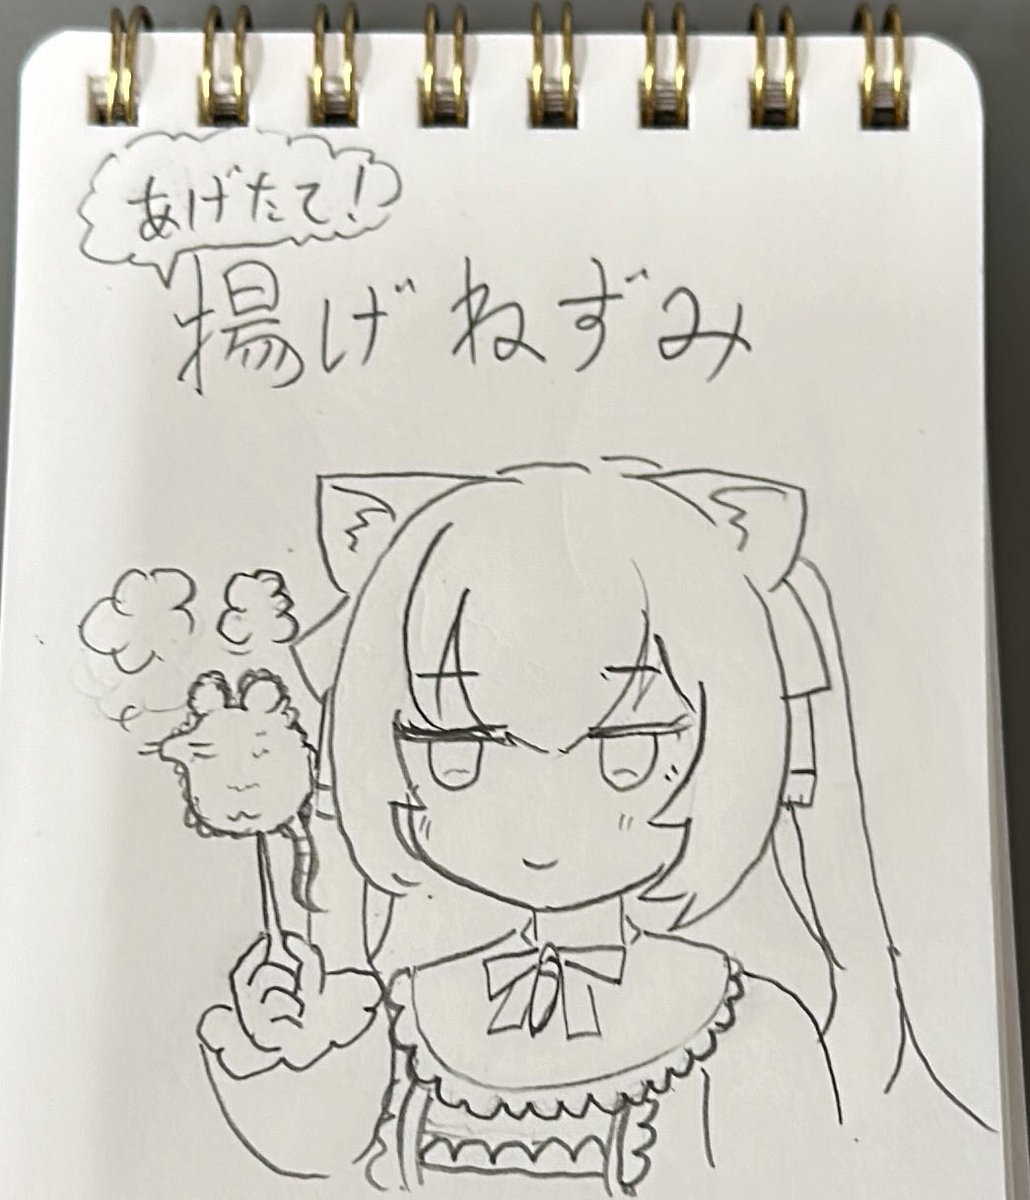 あげたて!
揚げねずみ